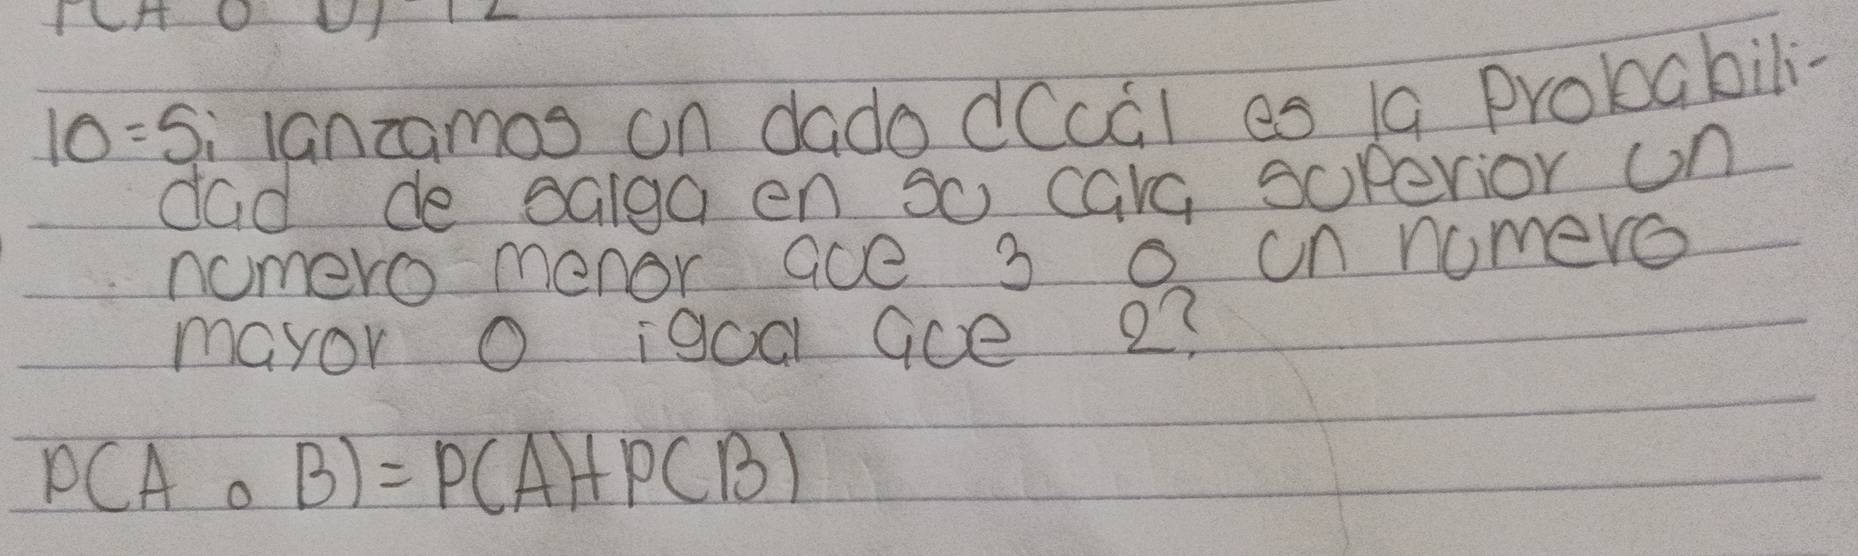 P(A o B) = 12
10=Si lanzamos un dado ¿Cuál es la probabili-
dad de salga en su cara superior un
numero menor que 3 o un numero
mayor o igual que 2?
P(A o B) = P(A)+P(B)